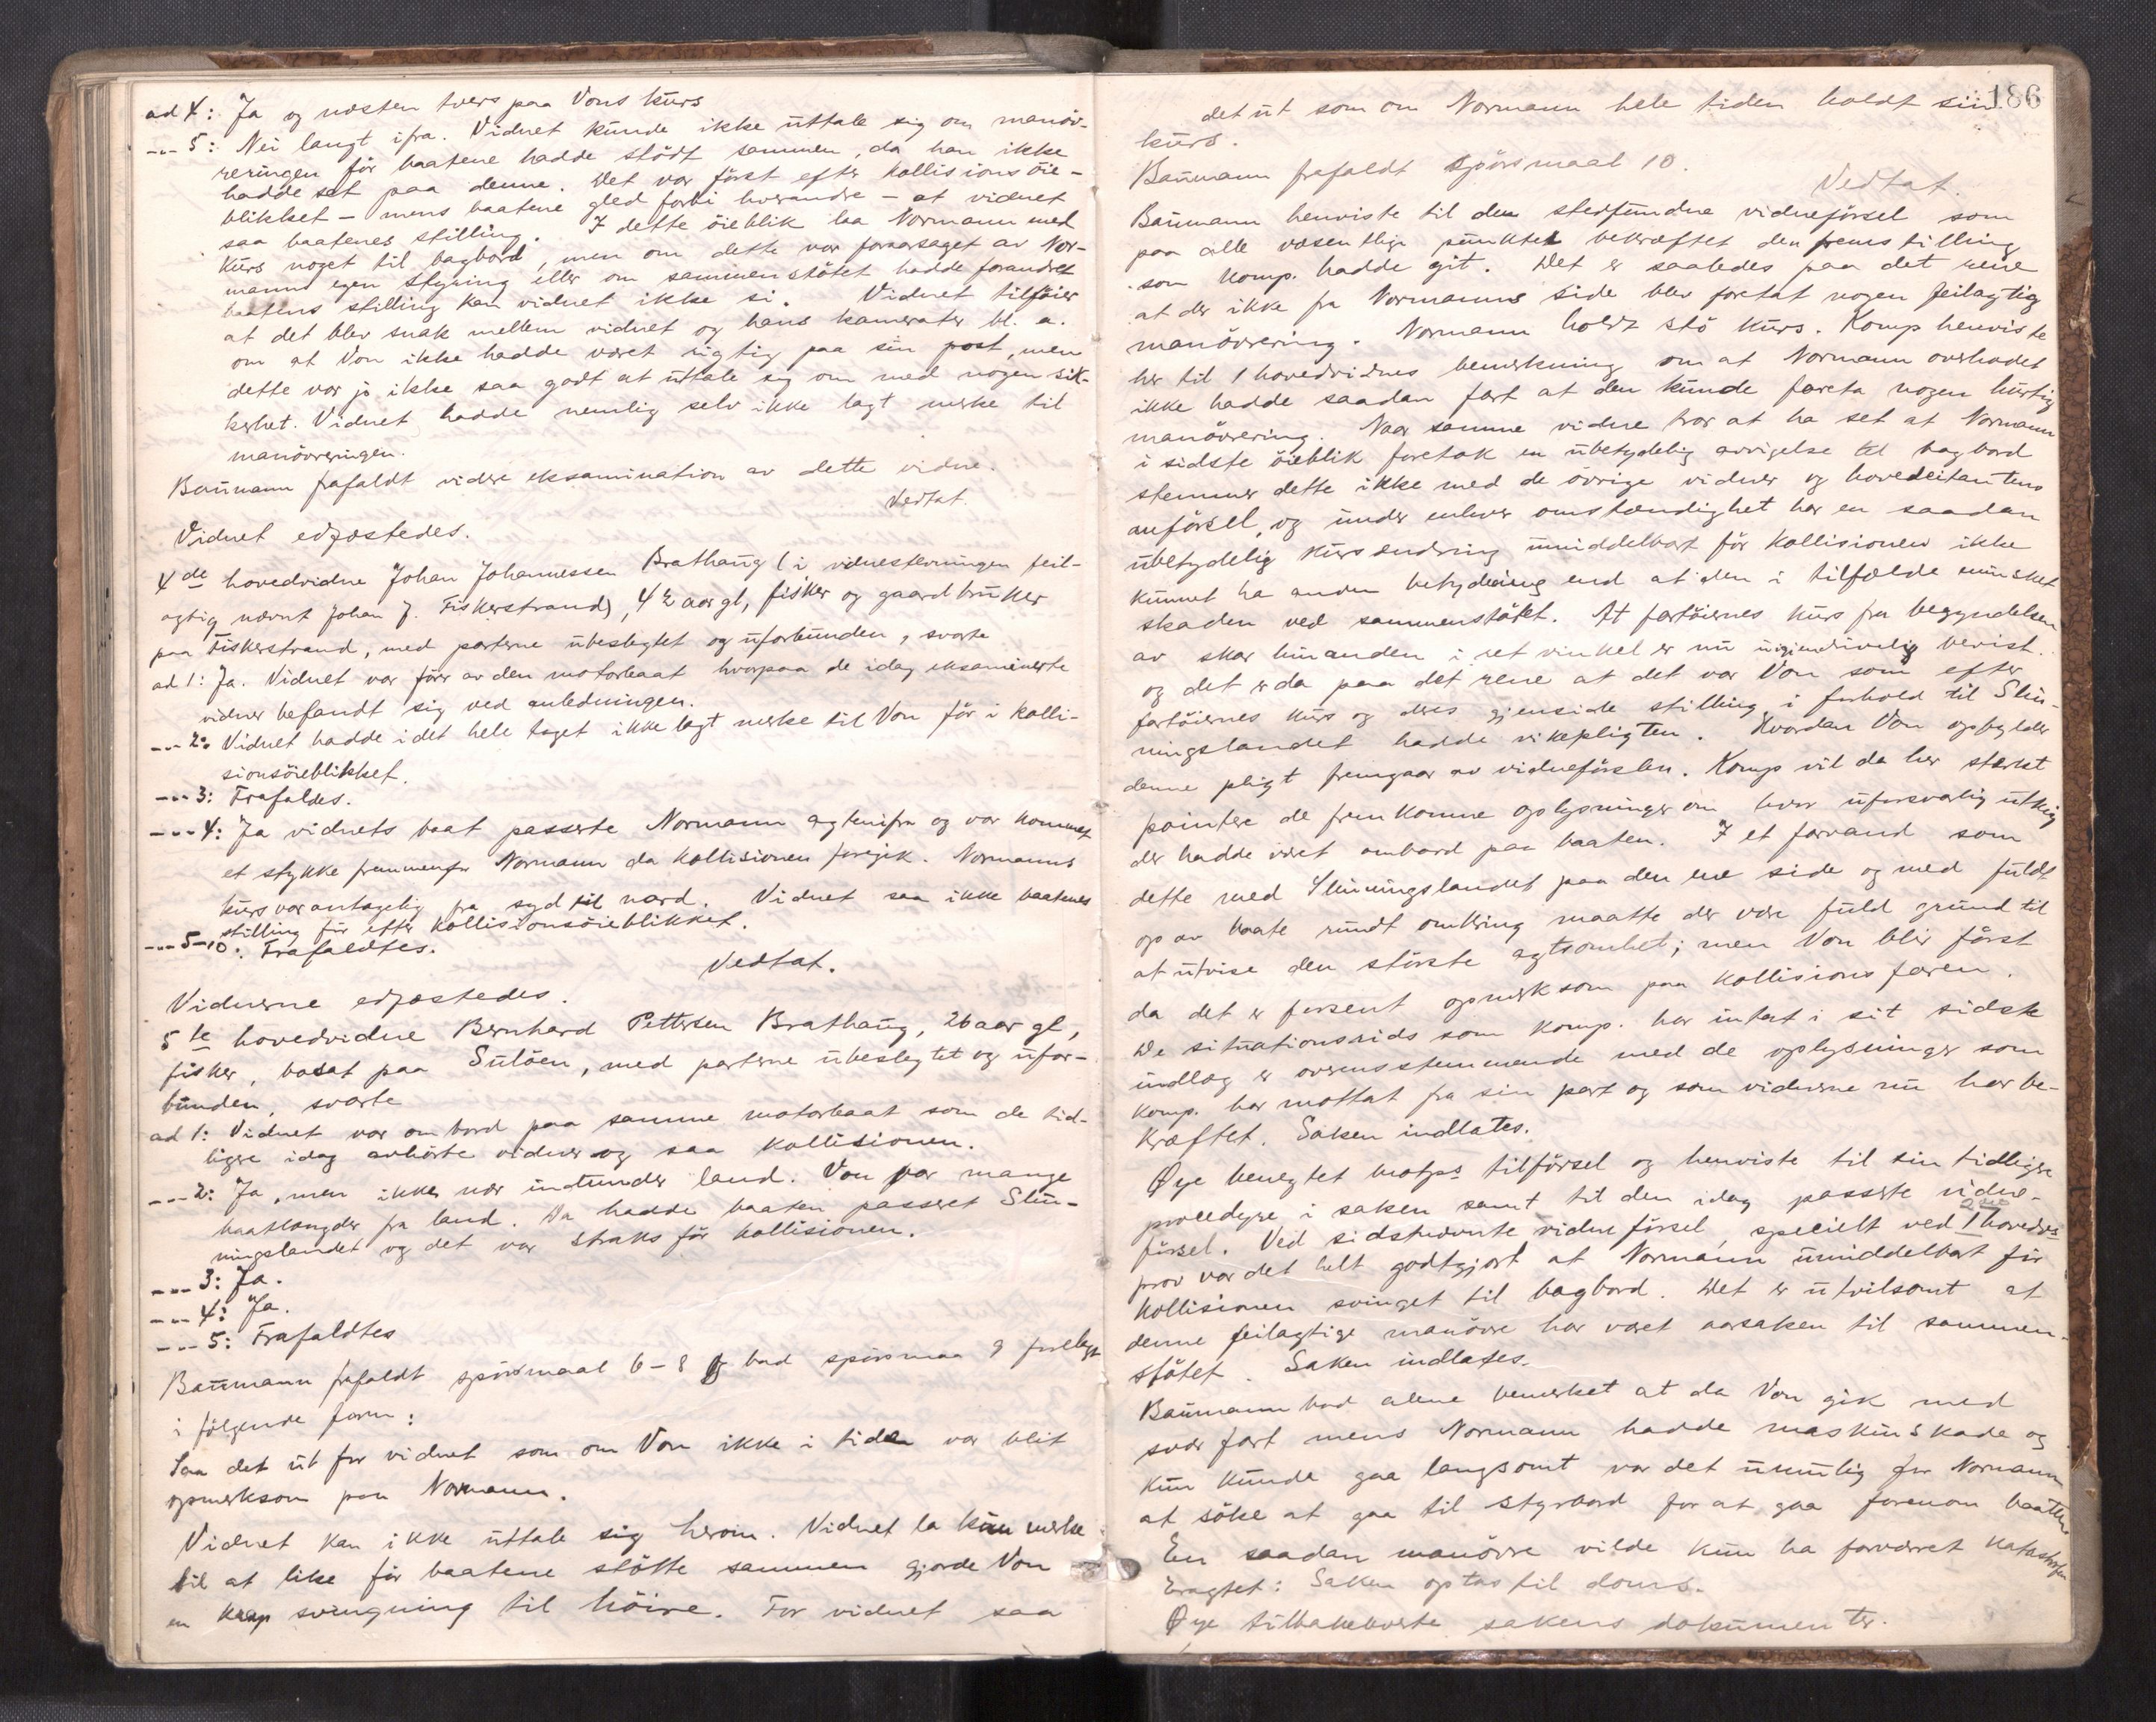 ad 4: Ja og næsten tvers paa Vons kurs
--- 5: Nei langt ifra. Vidnet kunde ikke uttale sig om manöv-
reringen för baatene hadde stödt sammen, da han ikke
hadde set paa denne. Det var först efter kollisionsöie-
blikket - mens baatene gled forbi hverandre - at vidnet
saa baatenes stilling. I dette öieblik laa Normann med
kurs noget til bagbord, men om dette var foraarsaget av Nor-
manns egen styring eller om sammenstötet hadde forandret
baatens stilling kan vidnet ikke si. Vidnet tilföier
at det blev snak mellem vidnet og hans kamerater bl. a.
om at Von ikke hadde været rigtig paa sin post, men
dette var jo ikke saa godt at uttale sig om med nogen sik-
kerhet. Vidnet hadde nemlig selv ikke lagt merke til
manövreringen.
Baumann frafaldt videre eksamination av dette vidne.
Vedtat.
Vidnet edfæstedes.
4de hovedvidne Johan Johannessen Brathaug (i vidnestevningen feil-
agtig nævnt Johan J. Fiskerstrand), 42 aar gl, fisker og gaardbruker
paa Fiskerstrand, med parterne ubeslegtet og uforbunden, svarte
ad 1: Ja. Vidnet var förer av den motorbaat hvorpaa de idag eksaminerte
vidner befandt sig ved anledningen.
--- 2: Vidnet hadde i det hele taget ikke lagt merke til Von för i kolli-
sionsöieblikket.
--- 3: Frafaldes.
--- 4: Ja vidnets baat passerte Normann agtenifra og var kommet
et stykke fremmenfor Normann da kollisionen foregik. Normanns
kurs var antagelig fra syd til nord. Vidnet saa ikke baatenes
stilling för efter kollisionsöieblikket.
--- 5-10: Frafaldtes.
Vedtat.
Vidnerne edfæstedes.
5te hovedvidne Bernhard Pettersen Brathaug, 26 aar gl,
fisker, bosat paa Sulöen, med parterne ubeslegtet og ufor-
bunden, svarte
ad 1: Vidnet var ombord paa samme motorbaat som de tid-
ligere idag avhörte vidner og saa kollisionen.
--- 2: Ja, men ikke nær indunder land. Von var mange
baatlængder fra land. Da hadde baaten passeret Slin-
ningslandet og det var straks för kollisionen.
--- 3: Ja.
--- 4: Ja.
--- 5: Frafaldtes
Baumann frafaldt spörsmaal 6-8 og bad spörsmaa 9 forelagt
i fölgende form:
Saa det ut for vidnet som om Von ikke i tide var blit
opmerksom paa Normann.
Vidnet kan ikke uttale sig herom. Vidnet la kun merke
til at like för baatene stötte sammen gjorde Von
en knap svingning til höire. For vidnet saa
186
det ut som om Normann hele tiden holdt sin
kurs.
Baumann frafaldt spörsmaal 10.
Vedtat.
Baumann henviste til den stedfundne vidneförsel som
paa alle væsentlige punkter bekræftet den fremstilling
som komp. hadde git. Det er saaledes paa det rene
at der ikke fra Normanns side blev foretat nogen feilagtig
manövrering. Normann holdt stö kurs. Komp henviste
her til 1 hovedvidnes bemerkning om at Normann overhodet
ikke hadde saadan fart at den kunde foreta nogen hurtig
manövrering. Naar samme vidne tror at ha set at Normann
i sidste öieblik foretok en ubetydelig avvigelse til bagbord
stemmer dette ikke med de övrige vidner og hovedcitantens
anförsel, og under enhver omstændighet har en saadan
ubetydelig kursændring umiddelbart för kollisionen ikke
kunnet ha anden betydning end at den i tilfælde minsket
skaden ved sammenstötet. At fartöiernes kurs fra begyndelsen
av skar hinanden i ret vinkel er nu uigjendrivelig bevist.
og det er da paa det rene at det var Von som efter
fartöiernes kurs og deres gjensidige stilling i forhold til Slin-
ningslandet hadde vikepligten. Hvordan Von opfylder
denne pligt fremgaar av vidneförslen. Komp vil da her sterkt
pointere de fremkomne oplysninger om hvor uforsvarlig utkig
der hadde været ombord paa baaten. I et farvand som
dette med Slinningslandet paa den ene side og med fuldt
op av baate rundt omkring maatte der være fuld grund til
at utvise den störste agtsomhet; men Von blir först
da det er forsent opmerksom paa kollisionsfaren.
De situationsrids som komp. har intat i sit sidste
indlæg er overensstemmende med de oplysninger som
komp. har mottat fra sin part og som vidnerne nu har be-
kræftet. Saken indlates.
Øye benegtet motps tilförsel og henviste til sin tidligere
procedyre i saken samt til den idag passerte vidne-
försel. Ved sidstnævnte vidneförsel, specielt ved 1 hovedvs
prov var det helt godtgjort at Normann umiddelbart för
kollisionen svinget til bagbord. Det er utvilsomt at
denne feilagtige manövre har været aarsaken til sammen-
stötet. Saken indlates.
Baumann bad alene bemerket at da Von gik med
svær fart mens Normann hadde maskinskade og
kun kunde gaa langsomt var det umulig for Normann
at söke at gaa til styrbord for at gaa forenom baaten
En saadan manövre vilde kun ha forværret katastrofen
Eragtet: Saken optas til doms.
Øye tilbakeleverte sakens dokumenter.